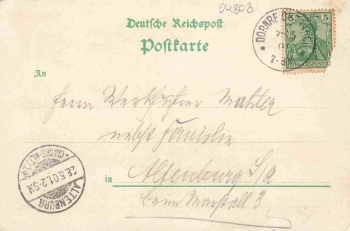 04808
Deutsche Reichspost
Postkarte
5
An
Herrn Werkführer Mahler
nebst Familie
in Altenburg S/a
beim Marstall 3
ALTENBURG